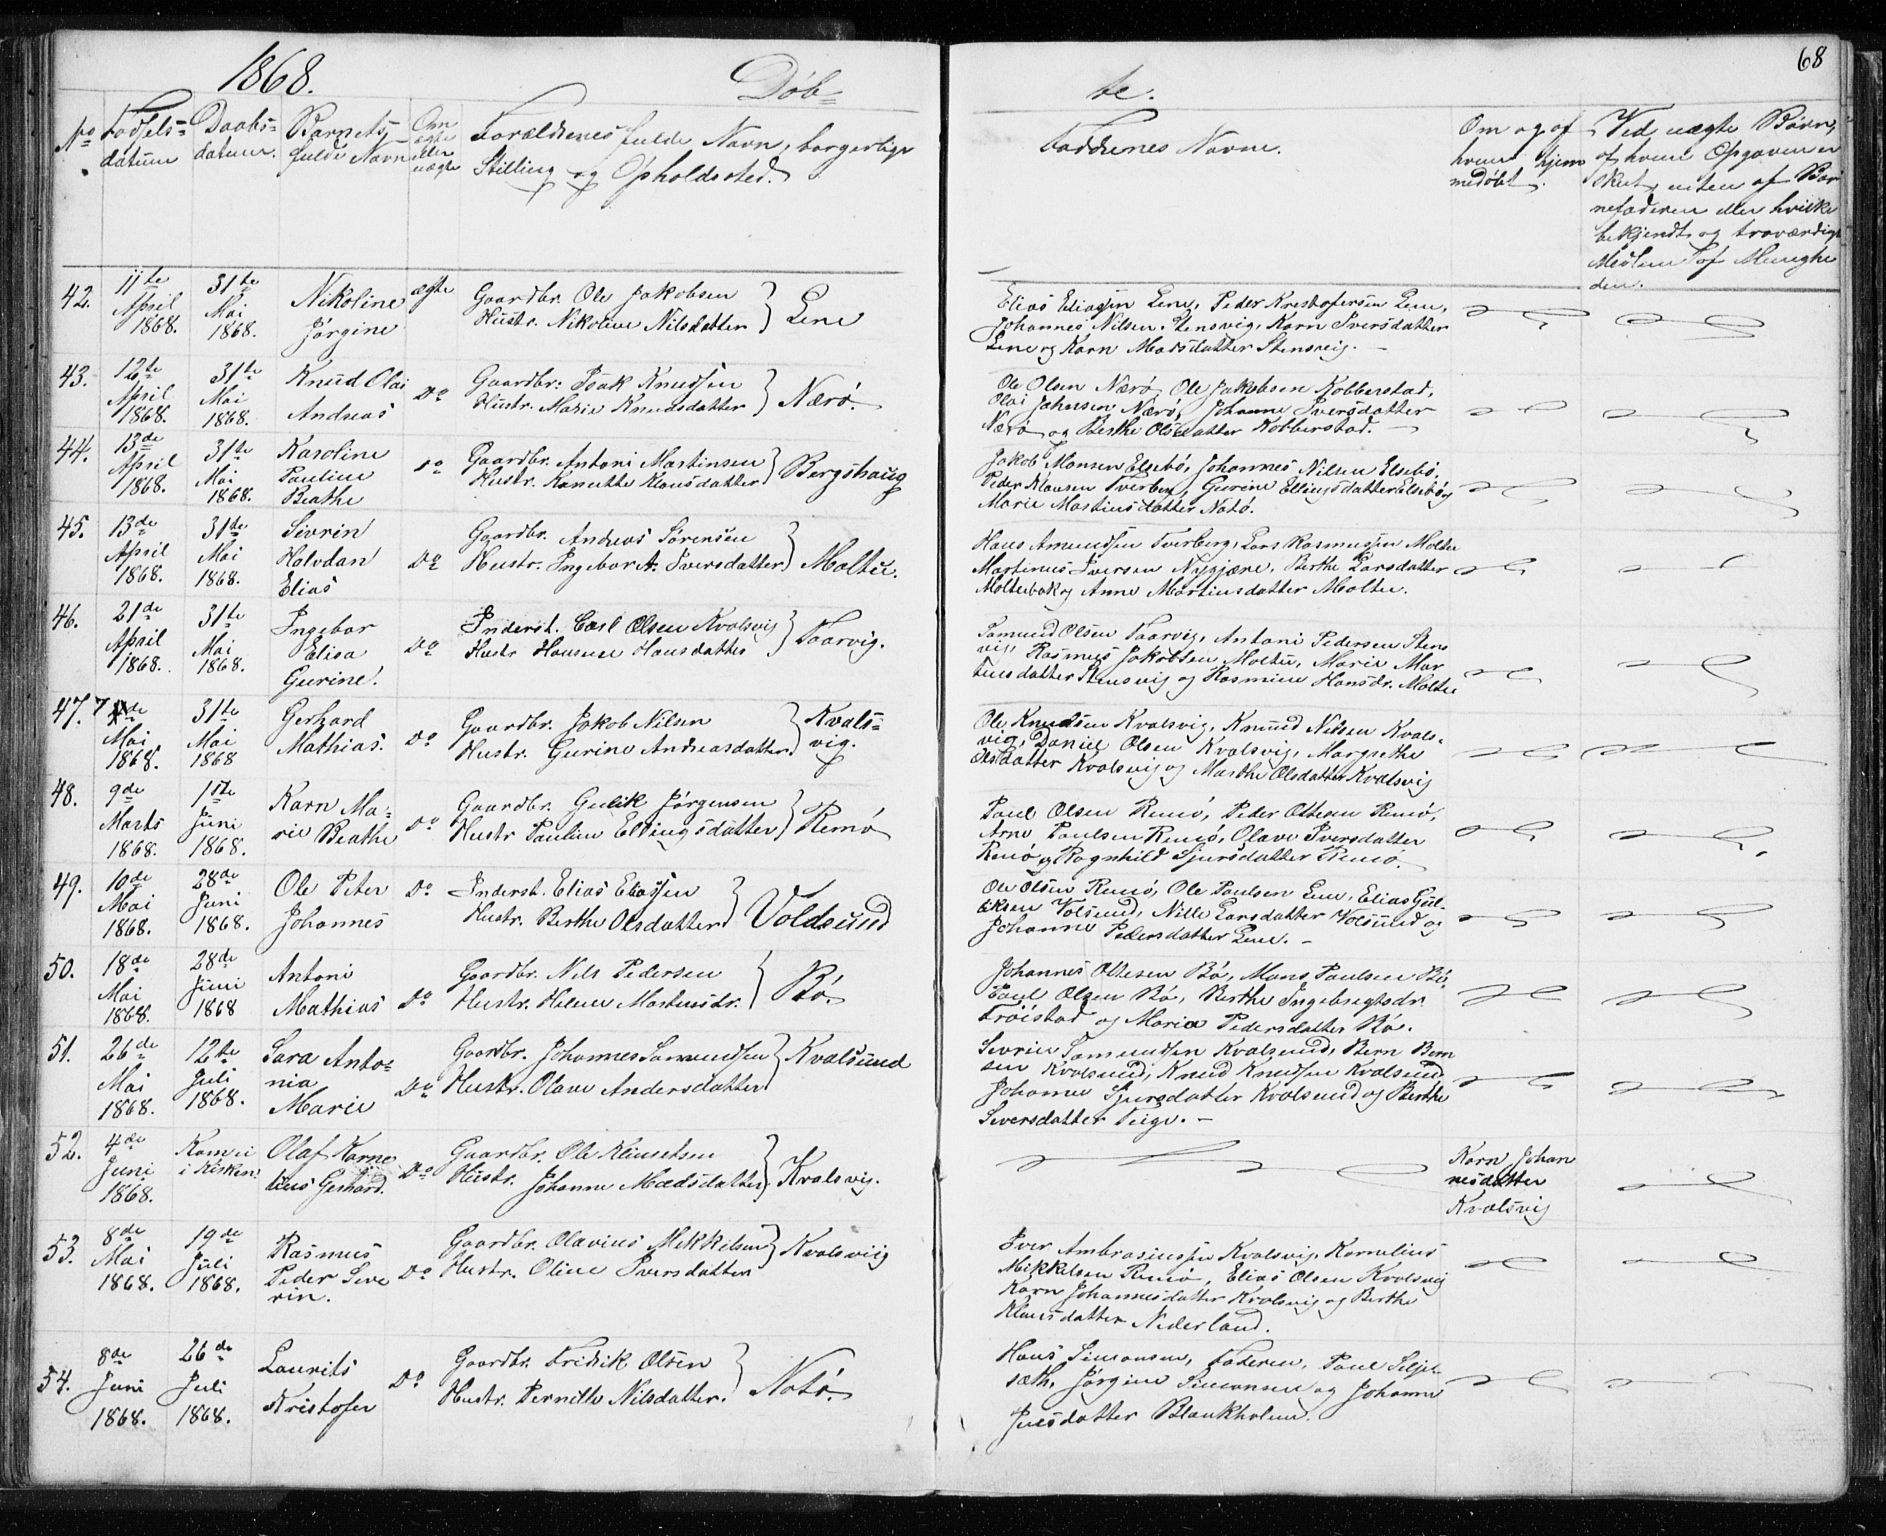 1868.
Døb=
te.
68
No
Fødsels=
datum
Daabs=
datum.
Barnets
fulde Navn
Om
ægte
eller
uægte
Forældrenes fulde Navn, borgerlige
Stilling og Opholdssted.
Faddrenes Navne.
Om og af
hvem hjem
medøbt.
Ved uægte Børn,
af hvem Opgaven er
skeet, enten af Bar
nefaderen eller hvilke
bekjendt og troværdige
Medlem af Menighe
den.
42.
11te
April
1868.
31te
Mai
1868.
Nikoline
Jørgine
ægte
Gaardbr. Ole Jakobsen
Hustr. Nikoline Nilsdatter
Lene
Elias Eliassen Lene, Peder Kristofersen Lene,
Johannes Nilsen, Stensvig, Karn Iversdatter
Lene og Karn Madsdatter Stensvig. -
43.
12te
April
1868.
31te
Mai
1868.
Knud Olai
Andreas
Do
Gaardbr: Isak Knudsen
Hustr. Marie Knudsdatter
Nærø.
Ole Olsen Nærø, Ole Jakobsen Kobberstad,
Olai Johansen Nærø, Johanne Iversdatter
Nærø og Berthe Olsdatter Kobberstad. -
44.
13de
April
1868.
31te
Mai
1868.
Karoline
Pauline
Beathe
Do
Gaardbr. Antoni Martinsen
Hustr. Kanutte Klausdatter
Bergshaug
Jakob Monsen Elsebø, Johannes Nilsen Elsebø,
Peder Klausen Tverberg, Gurine Ellingsdatter Elsebø og
Marie Martinsdatter Notø.
45.
13de
April
1868.
31te
Mai
1868.
Sivrin
Halvdan
Elias
Do
Gaardbr. Andreas Sørensen
Hustr. Ingebor A. Iversdatter
Moltu.
Hans Amundsen Tverberg, Lars Rasmussen Moltu
Martinus Iversen Nygjære, Berthe Larsdatter
Moltubak og Anne Martinsdatter Moltu.
46.
21de
April
1868.
31te
Mai
1868.
Ingebor
Elisa
Gurine.
Do
Inderst. Carl Olsen Kvalsvig
Hustr Hansine Hansdatter
Taarvig.
Samund Olsen Taarvig, Antoni Pedersen Stens
vig, Rasmus Jakobsen Moltu, Marie Mar
tinsdatter Stensvig og Rasmine Hansdr. Moltu
47.
7de
Mai
1868.
31te
Mai
1868
Gerhard
Mathias.
Do
Gaardbr. Jakob Nilsen
Hustr. Gurine Andreasdatter
Kvals=
vig.
Ole Knudsen Kvalsvig, Knud Nilsen Kvals-
vig, Daniel Olsen Kvalsvig, Margrethe
Olsdatter Kvalsvig og Marthe Olsdatter Kvalsvig
48.
9de
Marts
1868.
1ste
Juni
1868.
Karn Ma=
rie Beathe
Do
Gaardbr. Gulik Jørgensen
Hustr Pauline Ellingsdatter
Remø
Paul Olsen Remø, Peder Ottesen Remø,
Arne Paulsen Remø, Olave Iversdatter
Remø og Ragnhild Sjursdatter Remø.
49.
10de
Mai
1868.
28de
Juni
1868.
Ole Peter
Johannes
Do
Inderst. Elias Eliassen
Hustr. Berthe Olsdatter
Voldsund
Ole Olsen Remø, Ole Paulsen Lene, Elias Gul-
iksen Volsund, Nille Larsdatter Volsund og
Johanne Pedersdatter Lene. -
50.
18de
Mai
1868.
28de
Juni
1868
Antoni
Mathias
Do
Gaardbr. Nils Pedersen
Hustr. Helene Martinsdr.
Bø.
Johannes Ottesen Bø, Mons Paulsen Bø,
Paul Olsen Bø, Berthe Ingebregtsdr.
Frøistad og Maria Pedersdatter Bø.
51.
26de
Mai
1868.
12te
Juli
1868.
Sara Anto=
nia
Marie
Do
Gaardbr. Johannes Samundsen
Hustr. Olave Andersdatter
Kvalsund
Sevrin Samundsen Kvalsund, Bern Bern
sen Kvalsund, Knud Knudsen Kvalsund
Johanne Sjursdatter Kvalsund og Berthe
Siversdatter Teige. -
52.
4de
Juni
1868.
Kom ei
i Kirken.
Olaf Korne
lius Gerhard.
Do
Gaardbr. Ole Klausetsen
Hustr. Johanne Madsdatter
Kvalsvig.
Karn Johan
nesdatter
Kvalsvig
53.
8de
Mai
1868.
19de
Juli
1868.
Rasmus
Peder Seve
rin.
Do
Gaardbr. Olavius Mikkelsen
Hustr. Oline Iversdatter
Kvalsviig
Iver Ambrosiussen Kvalsvig, Kornelius
Mikkelsen Remø, Elias Olsen Kvalsvig
Karn Johannesdatter Kvalsvig og Berthe
Klausdatter Nederland.
54.
8de
Juni
1868.
26de
Juli
1868.
Laurits
Kristofer
Do
Gaardbr. Fredrik Olsen
Hustr. Pernille Nilsdatter.
Notø.
Hans Simonsen, Faderen, Paul Siljes
sæth, Jørgine Simonsen og Johanne
Juelsdatter Blankholm.